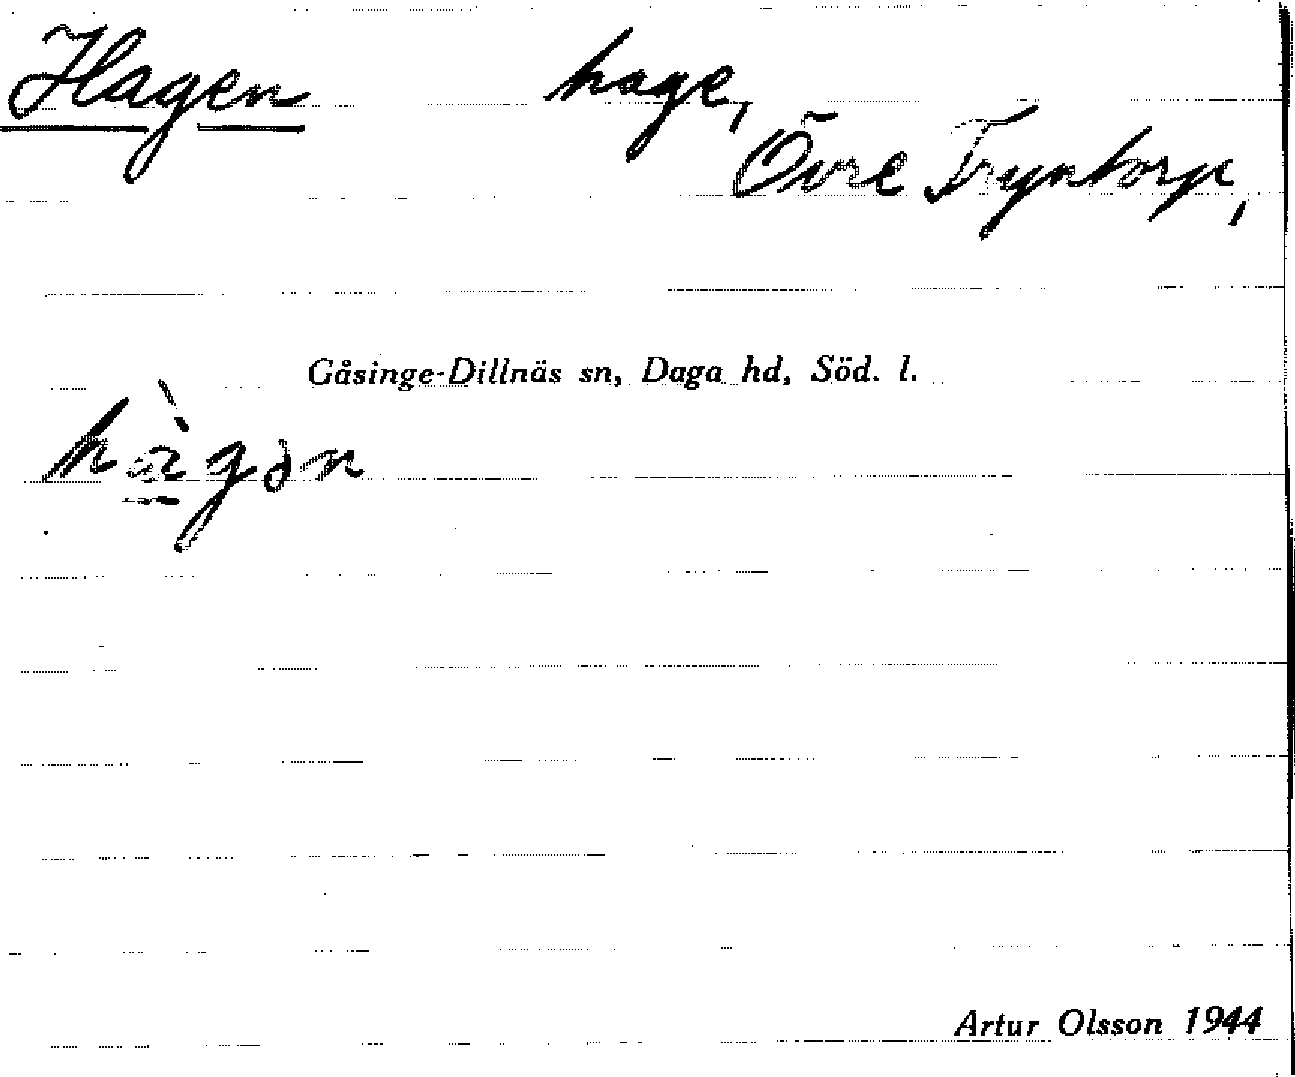 Hagen hage,
Övre Tryntorp,
Gåsinge-Dillnäs sn, Daga hd, Söd. l.
Artur Olsson 1944